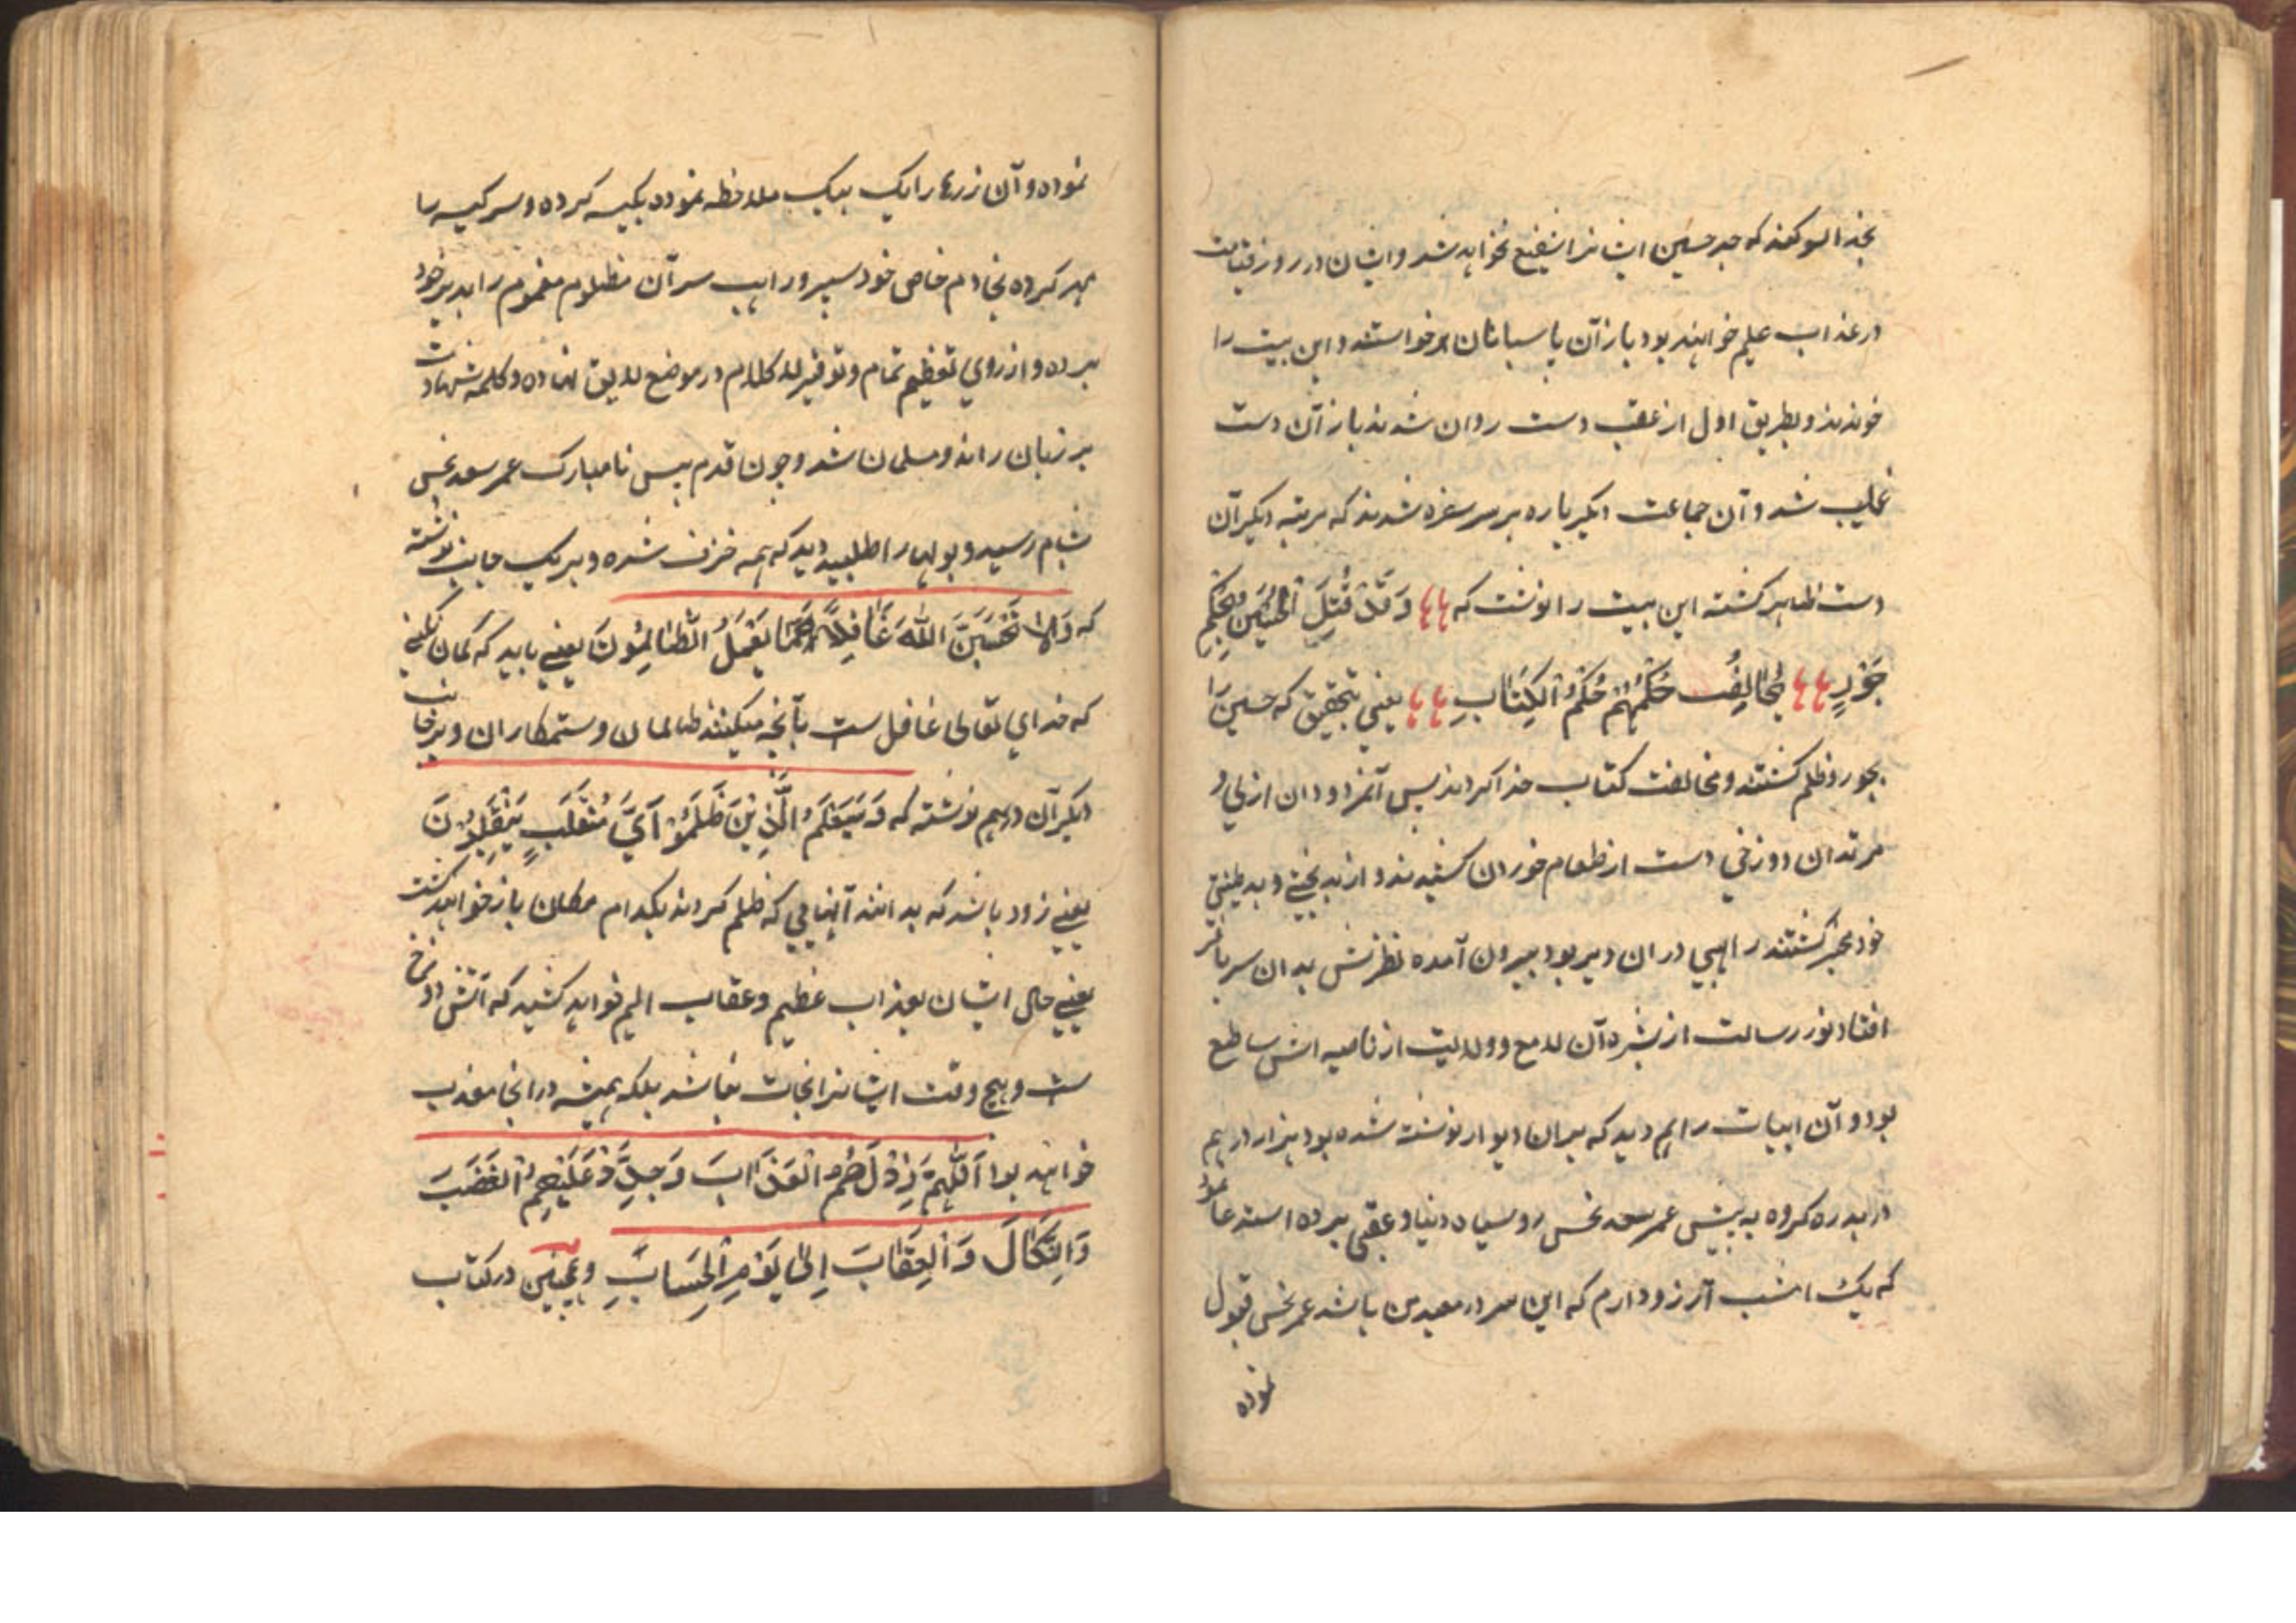 بخدا سوکند که جد حسین ایشانرا شفیع نخواهد شد و ایشان در روز قیامت
در عذاب علیم خواهند بود باز آن پاسبانان برخواستند و این بیت را
خوندند و بطریق اول از عقب دست روان شدند باز آن دست
غایب شد و آن جماعت دیکر باره بر سر سفره شدند که مرتبه دیکر آن
دست ظاهر کشته این بیت را نوشت که وَقَدْ قُتِلَ الْحُسَیْنُ بِحُکْمِ
جَوْرٍ یُخَالِفُ حُکْمُهُمْ حُکْمُ الْکِتَابِ یعنی بتحقیق که حسین را
بجور و ظلم کشتند و مخالفت کتاب خدا کردند پس آنمردودان ازلی و
مرتدان دوزخی دست از طعام خوردن کشیدند و از بدبختی و بد طینتی
خود مخبر کشتند راهبی در ان دیر بود بیرون آمده نظرش بدان سر
افتاد نور رسالت از بشره آن لامع و ولایت از ناصیه اش ساطع
بود و آن ابیات را هم دید که بران دیوار نوشته شده بود هزار درهم
در بدره کرده به پیش عمر سعد نحس روسیاه دنیا و عقبی برده استدعا نمود
که یک امشب آرزو دارم که این سر در معبد من باشد عمر نحس قبول
نموده
نموده و آن زرها را یک بیک ملاحظه نموده بکیسه کرده و سر کیسه را
مهر کرده بخادم خاص خود سپرد و راهب سر آن مظلوم مغموم را بدیر خود
برده و از روی تعظیم تمام و توقیر لا کلام در موضع لایق نهاده و کلمه شهادت
بر زبان رانده و مسلمان شد و چون قدم پیس نامبارک عمر سعد نحس
بشام رسید و پولها را طلبید دید که همه خزف شده و بر یک جانب نوشته
که وَلَا تَحْسَبَنَّ اللّٰهَ غَافِلًا عَمَّا یَعْمَلُ الظَّالِمُونَ یعنی باید که کمان نکنی
که خدای تعالی غافل ست بآنچه میکنند ظالمان و ستمکاران و بر جانب
دیکر آن درهم نوشته که وَسَیَعْلَمُ الَّذِیْنَ ظَلَمُوْ اَیَّ مُنْقَلَبٍ یَنْقَلِبُوْنَ
یعنی زود باشد که بدانند آنهایی که ظلم کردند بکدام مکان باز خواهند کشت
یعنی حال ایشان بعذاب عظیم و عقاب الیم خواهد کشید که آتش دوزخ
ست و هیچ وقت ایشانرا نجات نباشد بلکه همیشه در انجا معذب
خواهند بود اَللّٰهُمَّ زِدْ لَهُمُ الْعَذَابَ وَجَدِّدْ عَلَیْهِمُ الْغَضَبَ
وَالنَّکَالَ وَالْعِقَابَ اِلٰی یَوْمِ الْحِسَابِ و همچنین در کتاب